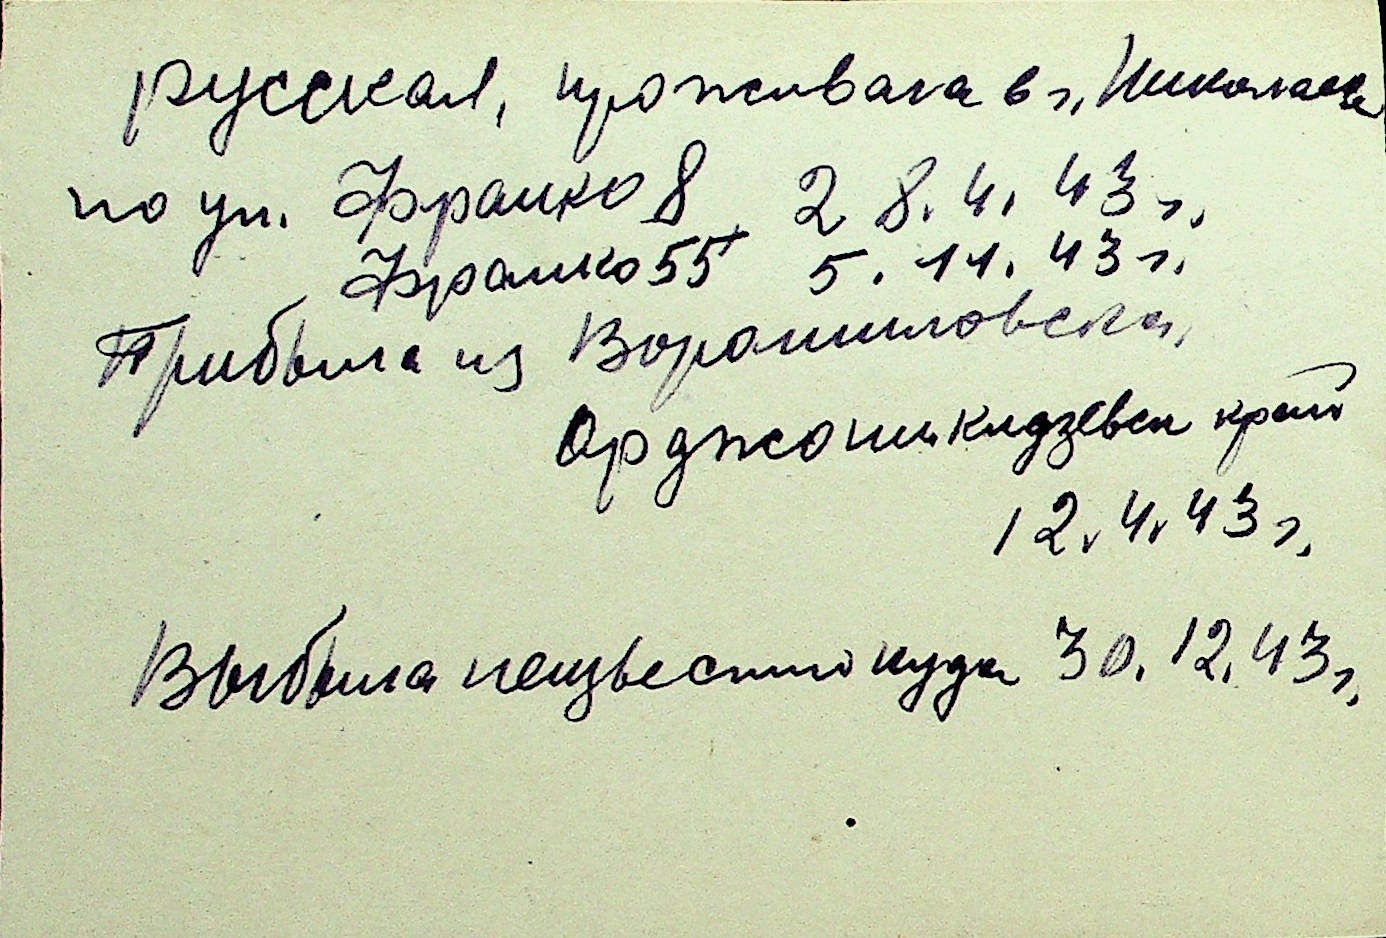 русская, проживала в г. Николаеве
по ул. Франко 8 28.4.43 г.
Франко 55 5.11.43 г.
Прибыла из Ворошиловска,
Орджоникидзевск край
12.4.43 г.
Выбыла неизвестно куда 30.12.43 г.